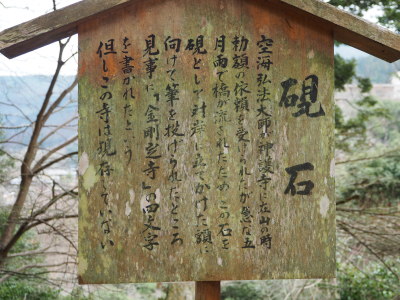 硯石
空海弘法大師が神護寺に在山の時
勅額の依頼を受けられたが急な五
月雨で橋が流されたため この石を
硯として対岸に立てかけた額に
向けて筆を投げられたところ
見事に「金剛定寺」の四文字
を書かれたという
但しこの寺は現存していない